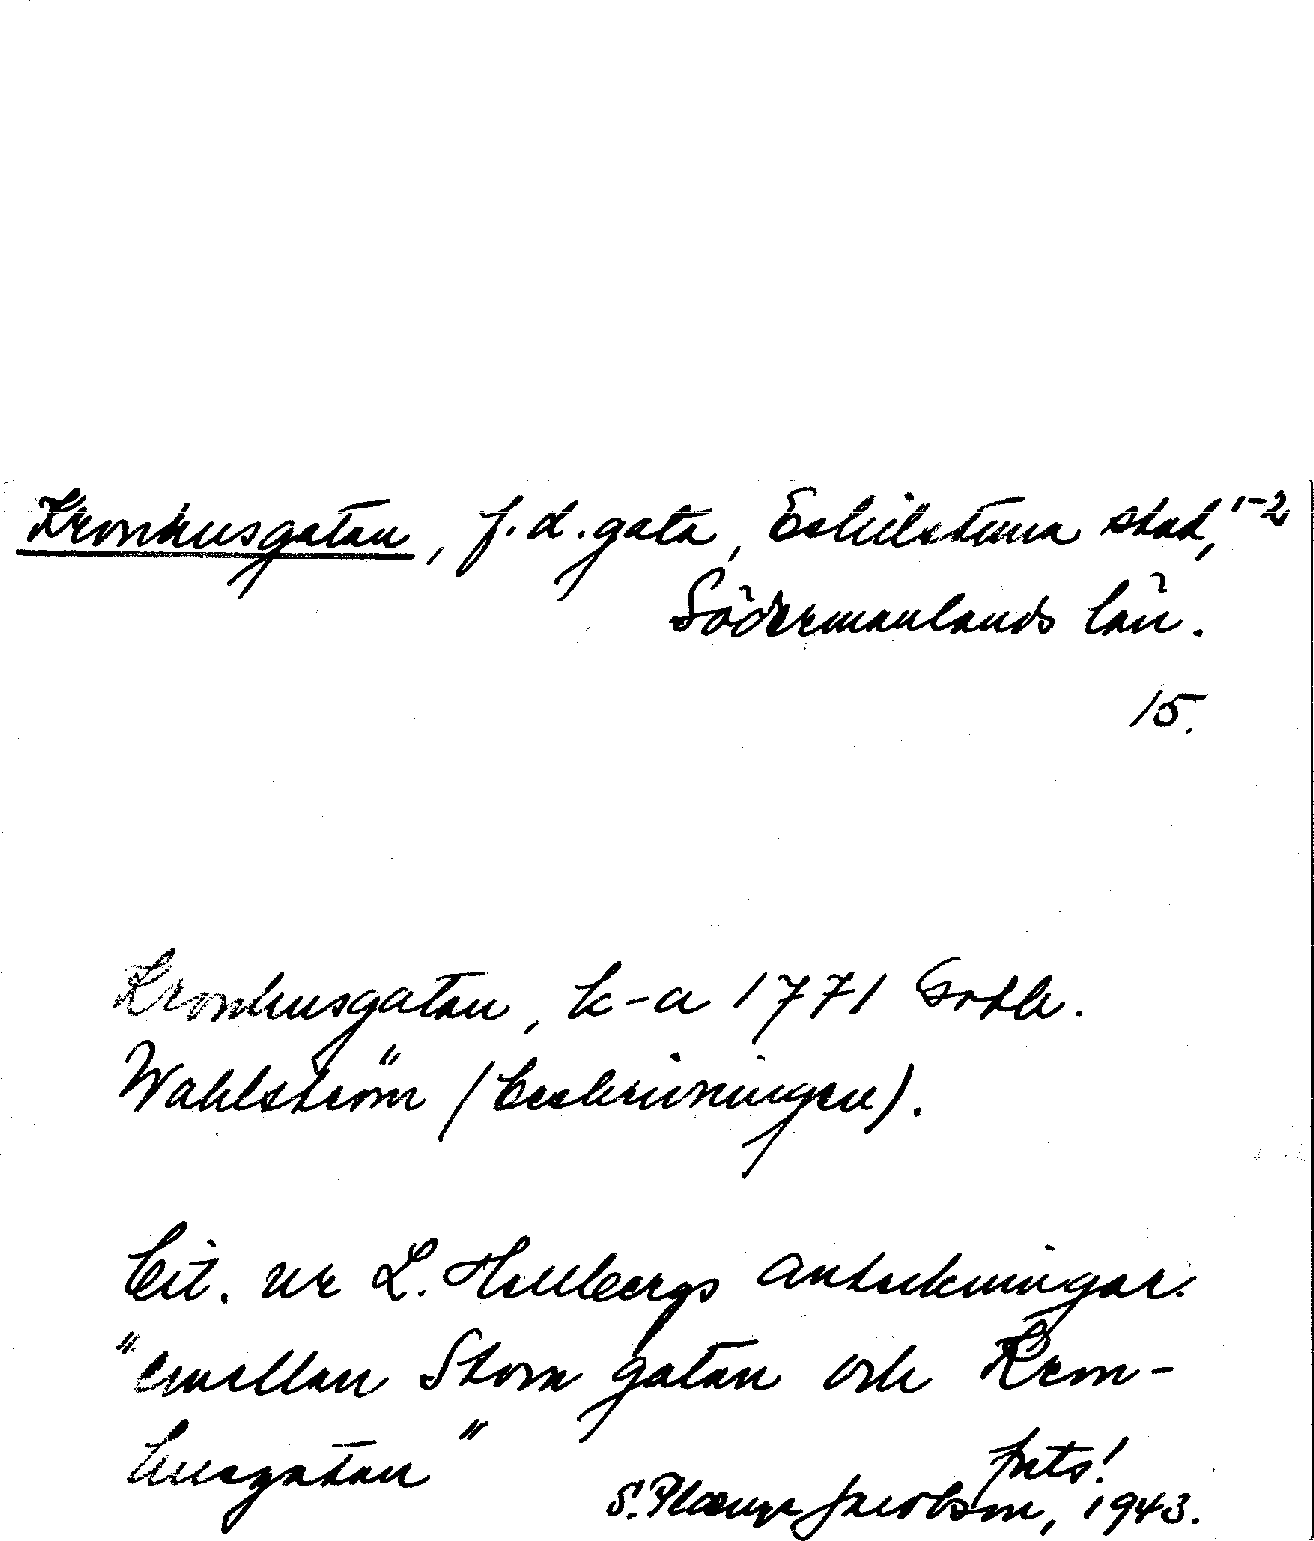 Kronhusgatan, f.d. gata, Eskilstuna stad, 1-2
Södermanlands län.
15.
Kronhusgatan, k-a 1771 Gotth.
Wahlström (beskrivningen).
Cit. ur L. Hellbergs anteckningar.
"emellan Stora gatan och Kron-
husgatan"
forts!
S. Jacobson, 1943.